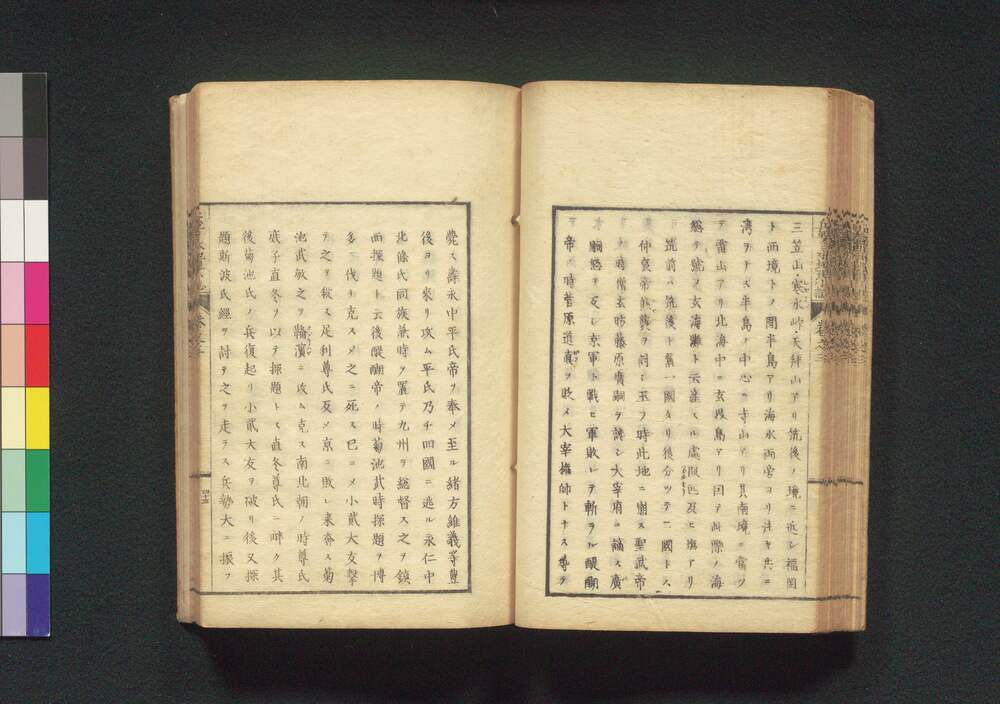 三笠山・寒水峠・天拝山アリ筑後ノ境ニ近シ福岡
ト西境トノ間半島アリ海水両旁ヨリ注キ共ニ
湾ヲトス半島ノ中心ニ寺山アリ其南境ニ當ツ
テ雷山アリ北海中ニ玄界島アリ因テ此際ノ海ヲ
總テ號ノ玄海灘ト云産スル處
筑前ハ筑後ト舊一國タリ後分ツテ二國トス
仲哀帝熊襲ヲ伺シ玉フ時此地ニ崩ス聖武帝
ノ時僧玄昉藤原廣嗣ヲ譖シ大宰府ニ謫ス廣
嗣怒ヲ反シ京軍ト戰ヒ軍敗レテ斬ラル醍醐
帝ノ時菅原道真ヲ貶メ大宰権師トナス尋テ
薨ス壽永中平氏帝ヲ奉メ至ル緒方維義等豊
後ヨリ來リ攻ム平氏乃チ四國ニ逃ル永仁中
北條氏同族兼時ヲ置テ九州ヲ総督ス之ヲ鎮
西探題ト云後醍醐帝ノ時菊池武時探題ヲ博
多ニ伐チ克スメ之ニ死ス已ニメ小貳大友撃
テ之ヲ殺ス足利尊氏反メ京ニ敗レ來奔ス菊
池武敏之ヲ ニ攻ム克ス南北朝ノ時尊氏
庶子直冬ヲ以テ探題トス直冬尊氏ニ畔ク其
後菊池氏ノ兵復起リ小貳大友ヲ破リ後又探
題斯波氏經ヲ討チ之ヲ走ラス兵勢大ニ振フ